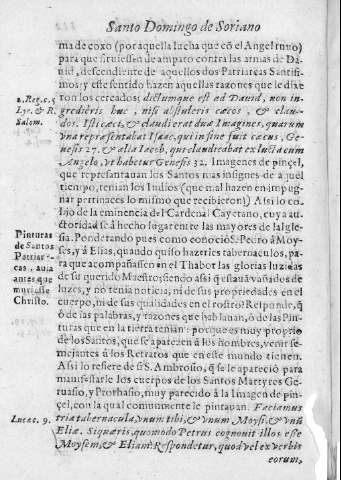 Santo Domingo de Soriano
ma de coxo (por aquella lucha que cõ el Angel tuuo)
para que siruiessen de amparo contra las armas de Da-
uid, descendiente de aquellos dos Patriarcas Santissi-
mos; y este sentido hazen aquellas razones que le dixe
ron los cercados; dictumque est ad Dauid, non in-
2. Reg. c. 5
gredieris huc, nisi abstuleris cæcos, & clau-
Lyr. & R.
dos. Isti cæci, & claudi erāt duæ Imagines, quarum
Salom.
vna repræsentabat Isaac, qui in fine fuit cæcus, Ge-
nesis 27. & alia Iacob, qui claudicabat ex lucta cum
Angelo, vt habetur Genesis 32. Imagenes de pinçel,
que representauan los Santos mas insignes de aquel
tiempo, tenian los Indios (que mal hazen en impug-
nar pertinaces lo mismo que recibieron!) Assi lo co-
lijo de la eminencia del Cardenal Cayetano, cuya au-
ctoridad se à hecho lugar entre las mayores de la Igle-
sia. Ponderando pues como conociò S. Pedro à Moy-
Pinturas
ses, y à Elias, quando quiso hazerles tabernaculos, pa-
de Santos
ra que acompañassen en el Thabor las glorias luzidas
Patriar-
de su querido Maestro; siendo assi q̃ estauā vañados de
cas, auia
luzes, y no tenia noticia, ni de sus propriedades en el
antes que
cuerpo, ni de sus qualidades en el rostro? Responde, q̃
muriesse
Christo.
ò de las palabras, y razones que hablauan, ò de las Pin-
turas que en la tierra tenian: porque es muy proprio
de los Santos, que se aparecen à los hombres, venir se-
mejantes à los Retratos que en este mundo tienen.
Assi lo refiere de si S. Ambrosio, q̃ se le apareciò para
manifestarle los cuerpos de los Santos Martyres Ger-
uasio, y Prothasio, muy parecido à la Imagen de pin-
çel, con la qual comunmente le pintauan. Faciamus
tria tabernacula, vnum tibi, & vnum Moysi, & vnũ
Lucæ c. 9.
Eliæ. Si quæris, quomodo Petrus cognouit illos esse
Moysem, & Eliam? Respondetur, quod vel ex verbis
eorum,